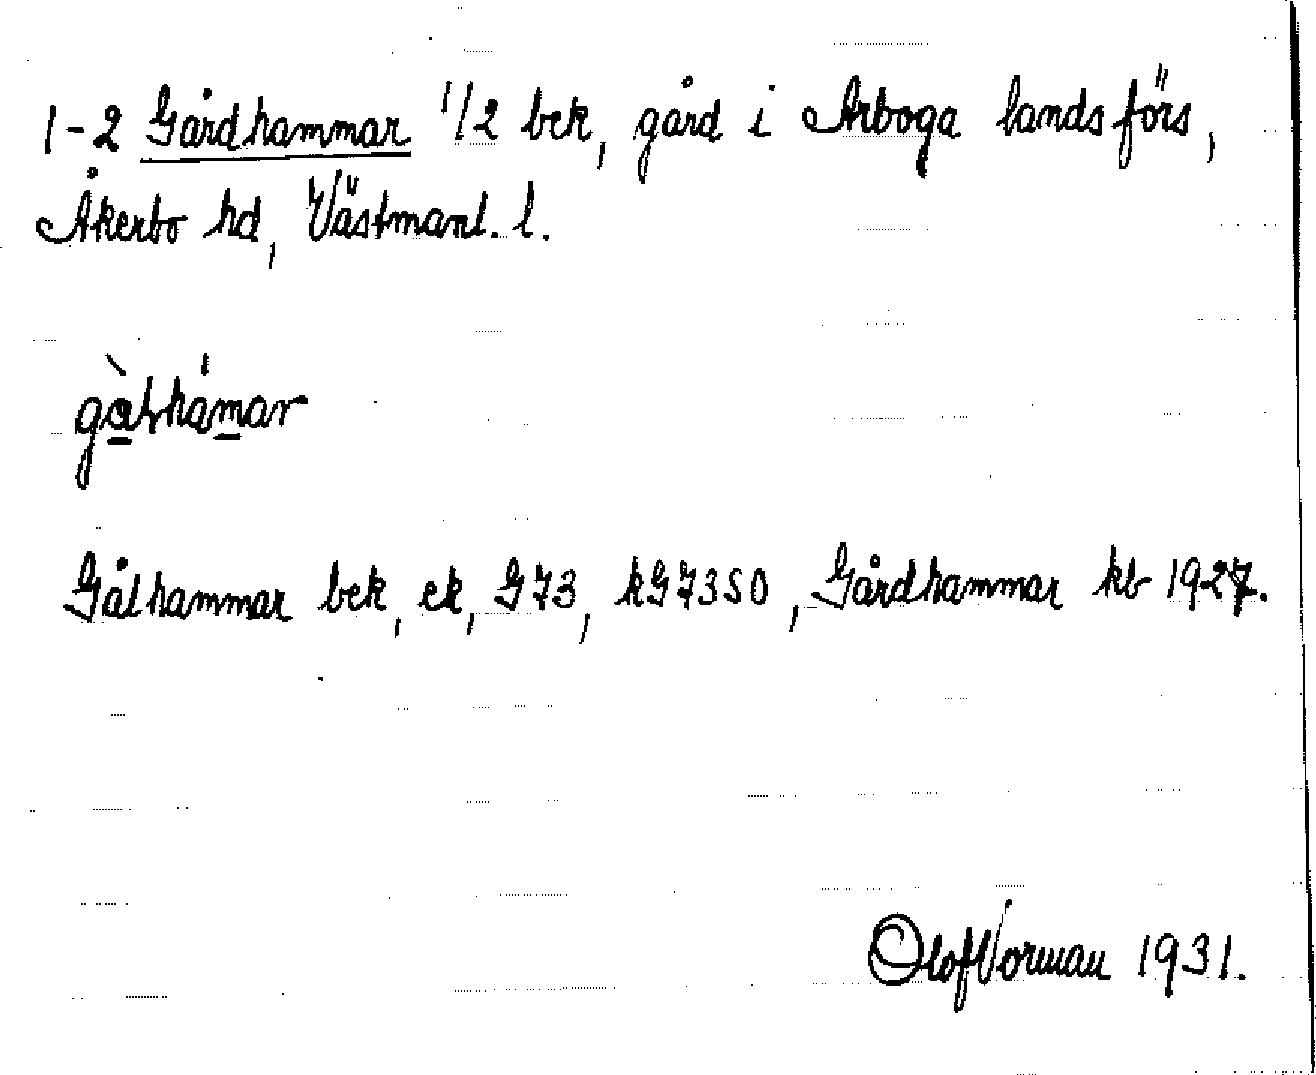 1-2 Gårdhammar 1/2 bek, gård i Arboga landsförs,
Åkerbo hd, Västmanl. l.
Gålhammar bek, ek, G73, kG7350, Gårdhammar kb 1927.
Olof Vorman 1931.